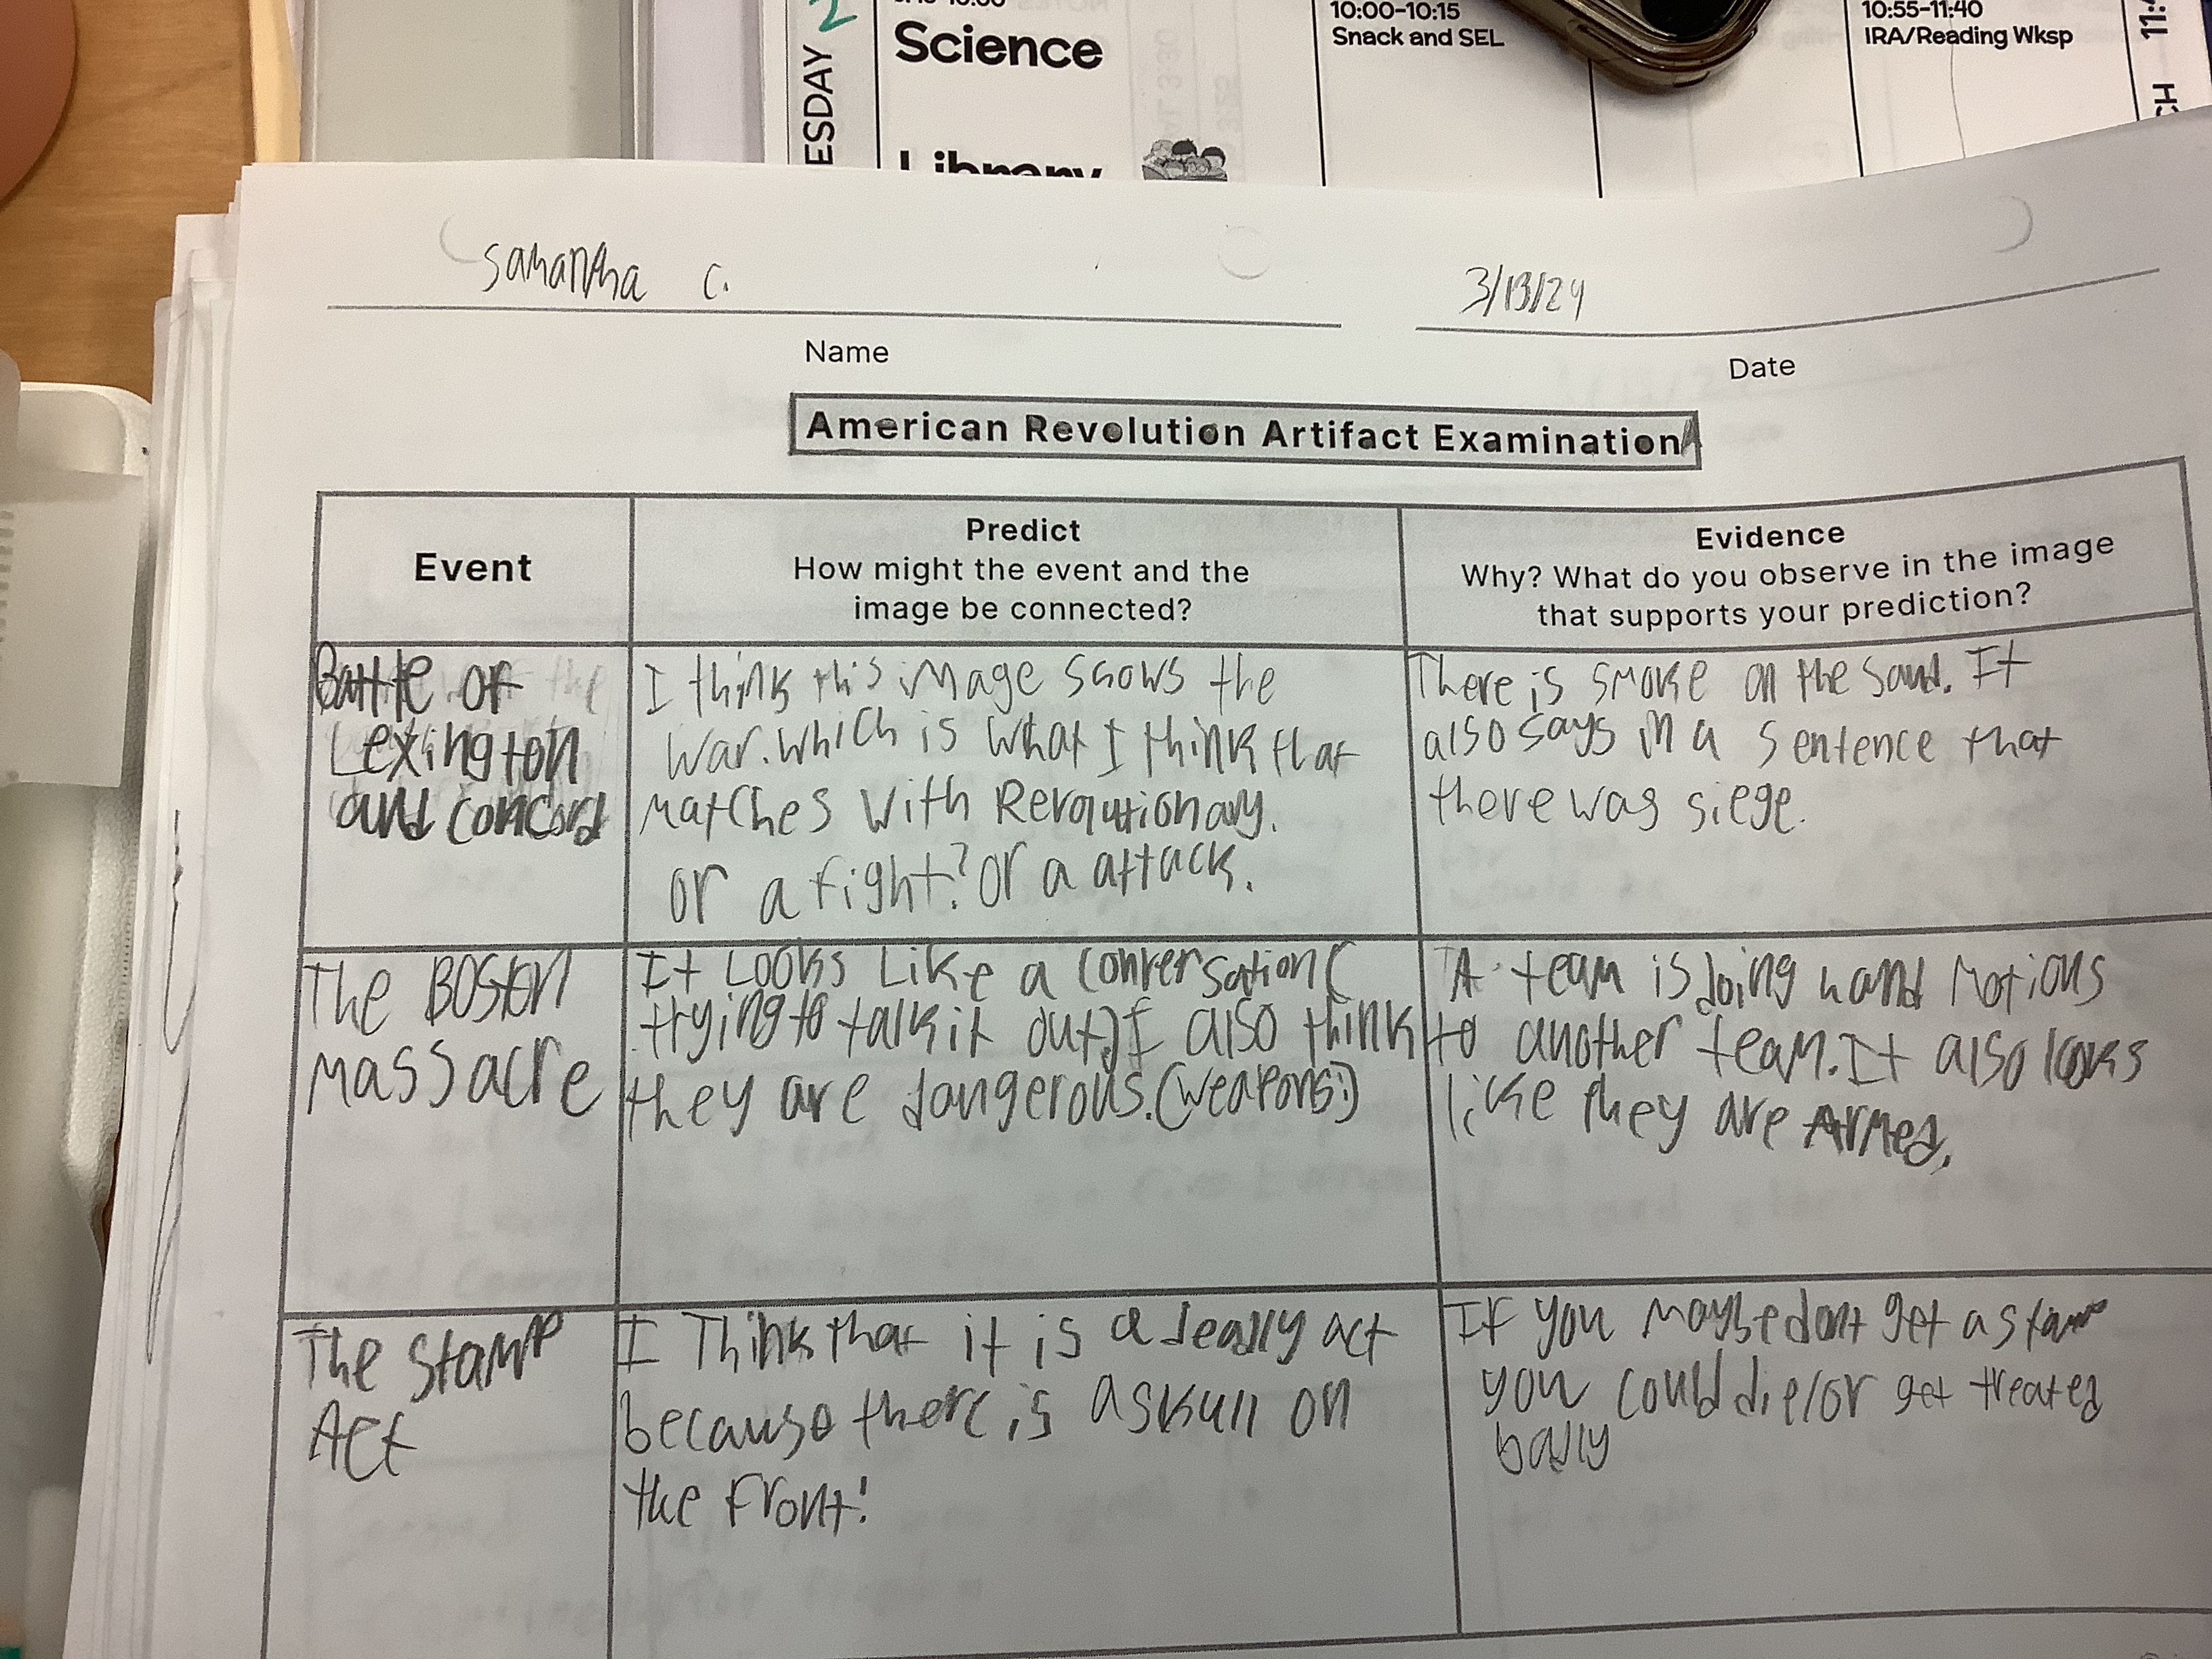 ESDAY
2
Science
Library
10:00-10:15
Snack and SEL
10:55-11:40
IRA/Reading Wksp
11:4
CH
Samantha C.
3/13/24
Name
Date
American Revolution Artifact Examination
Event
Predict
How might the event and the
image be connected?
Evidence
Why? What do you observe in the image
that supports your prediction?
Battle of
Lexington
and concord
I think this image shows the
war. which is what I think that
matches with Revolutionary.
or a fight? or a attack.
There is smoke on the sand. It
also says in a sentence that
there was siege.
The Boston
Massacre
It Looks Like a conversation(
trying to talk it out) I also think
they are dangerous. (weapons?)
A team is doing hand motions
to another team. It also looks
like they are Armed.
The Stamp
Act
I Think that it is a deadly act
because there is a skull on
the front!
If you maybe dont get a stamp
you could die/or get treated
badly